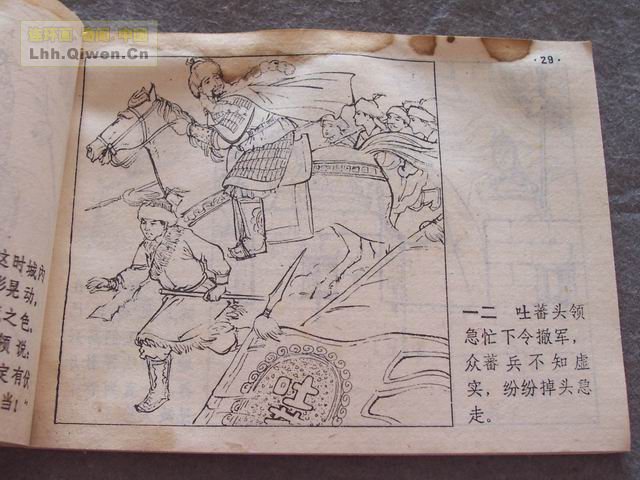 连环画·奇闻·中国
Lhh.Qiwen.Cn
·29·
这时城内
影晃动,
之色.
说:
定有伏
当!"
一二 吐蕃头领
急忙下令撤军,
众蕃兵不知虚
实,纷纷掉头急
走。
吐